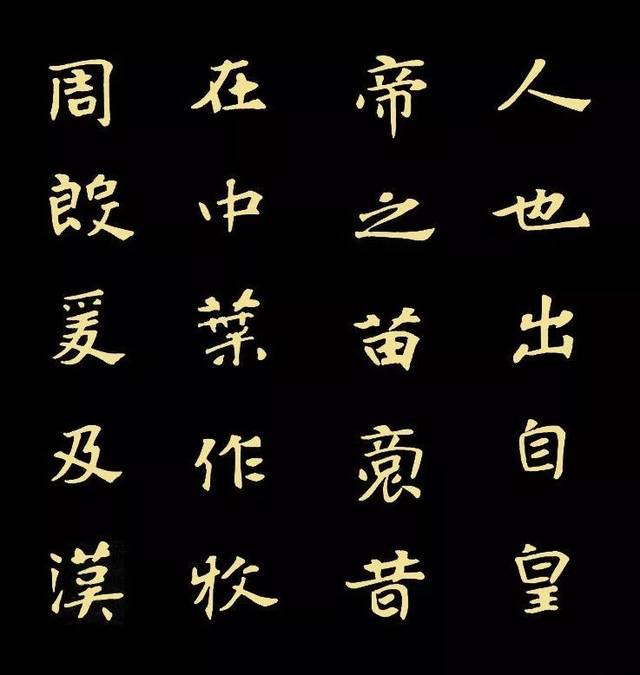 人也出自皇
帝之苗裔昔
在中葉作牧
周殷爰及漢